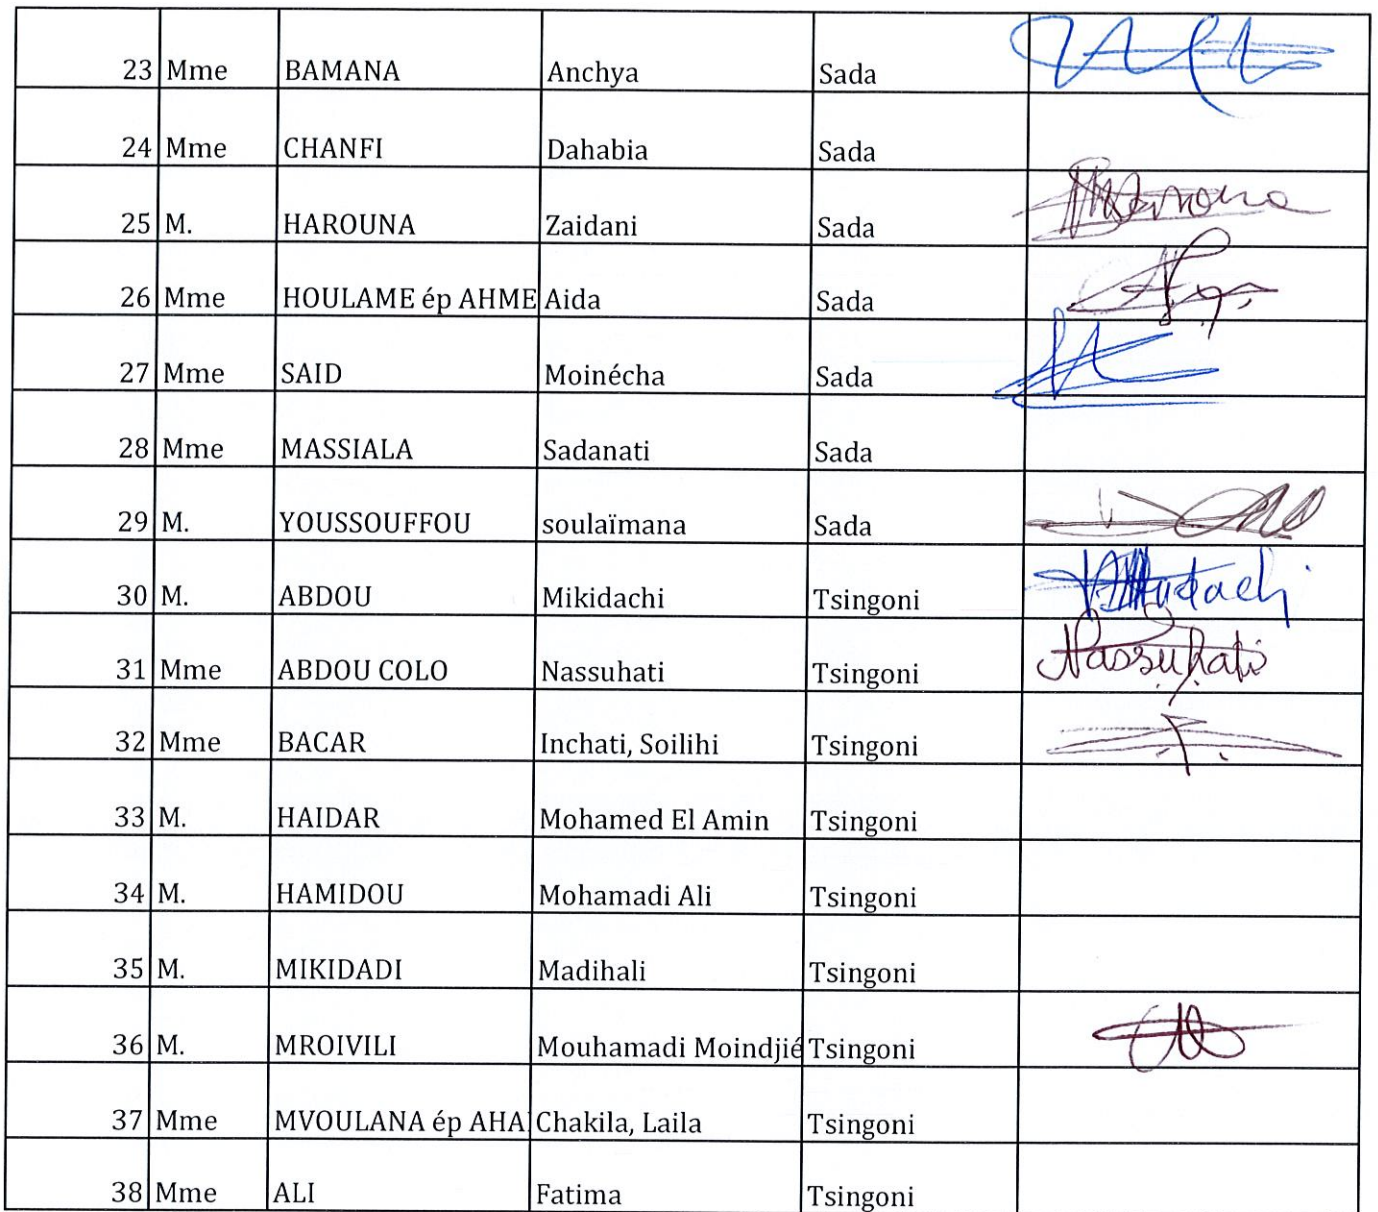 23 Mme BAMANA Anchya Sada
24 Mme CHANFI Dahabia Sada
25 M. HAROUNA Zaidani Sada
26 Mme HOULAME ép AHME Aida Sada
27 Mme SAID Moinécha Sada
28 Mme MASSIALA Sadanati Sada
29 M. YOUSSOUFFOU soulaïmana Sada
30 M. ABDOU Mikidachi Tsingoni
31 Mme ABDOU COLO Nassuhati Tsingoni Nassuhati
32 Mme BACAR Inchati, Soilihi Tsingoni
33 M. HAIDAR Mohamed El Amin Tsingoni
34 M. HAMIDOU Mohamadi Ali Tsingoni
35 M. MIKIDADI Madihali Tsingoni
36 M. MROIVILI Mouhamadi Moindjié Tsingoni
37 Mme MVOULANA ép AHA Chakila, Laila Tsingoni
38 Mme ALI Fatima Tsingoni